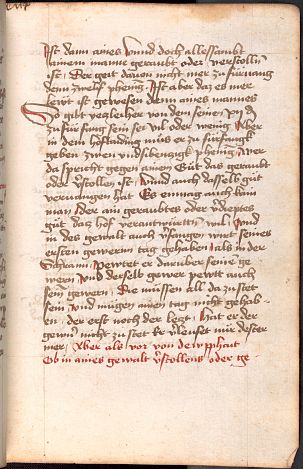 Ist dann aines vnnd doch allessambt
ainem manne geraubt oder verstollnn
ist Der geit darvon nicht mer zu fürfang
denn zwelf phening Ist aber daz es mer
lewt ist gewesen denn aines mannes
So gibt yetzleicher von dem seinen
zu fürfang sein sey vil oder wenig Aber
in dem hoftaiding mus er zu fürfang
geben zwen vnd sibentzigk phening Wer
da spricht gegen ainen Gut das geraubt
oder verstollen ist vnnd auch dasselb gut
verfangen hat Es enmag auch kain
man Der ain geraubtes oder
gut daz hof verantwurttn wil vnnd
in des gewalt auch verfangen wirt seines
ersten gewern tag gehaben als in der
Schrann pewtet er darüber seine ge
wern vnd derselb gewer pewtt auch
sein gewern Die müssen all da zu stet
sein vnd mügen ainen tag nicht gehab
en der erst noch der lezt Hat er der
gewern nicht zu stet er verleuset nür dester
mer Aber als vor von
Ob in aines gewalt verstollens oder ge